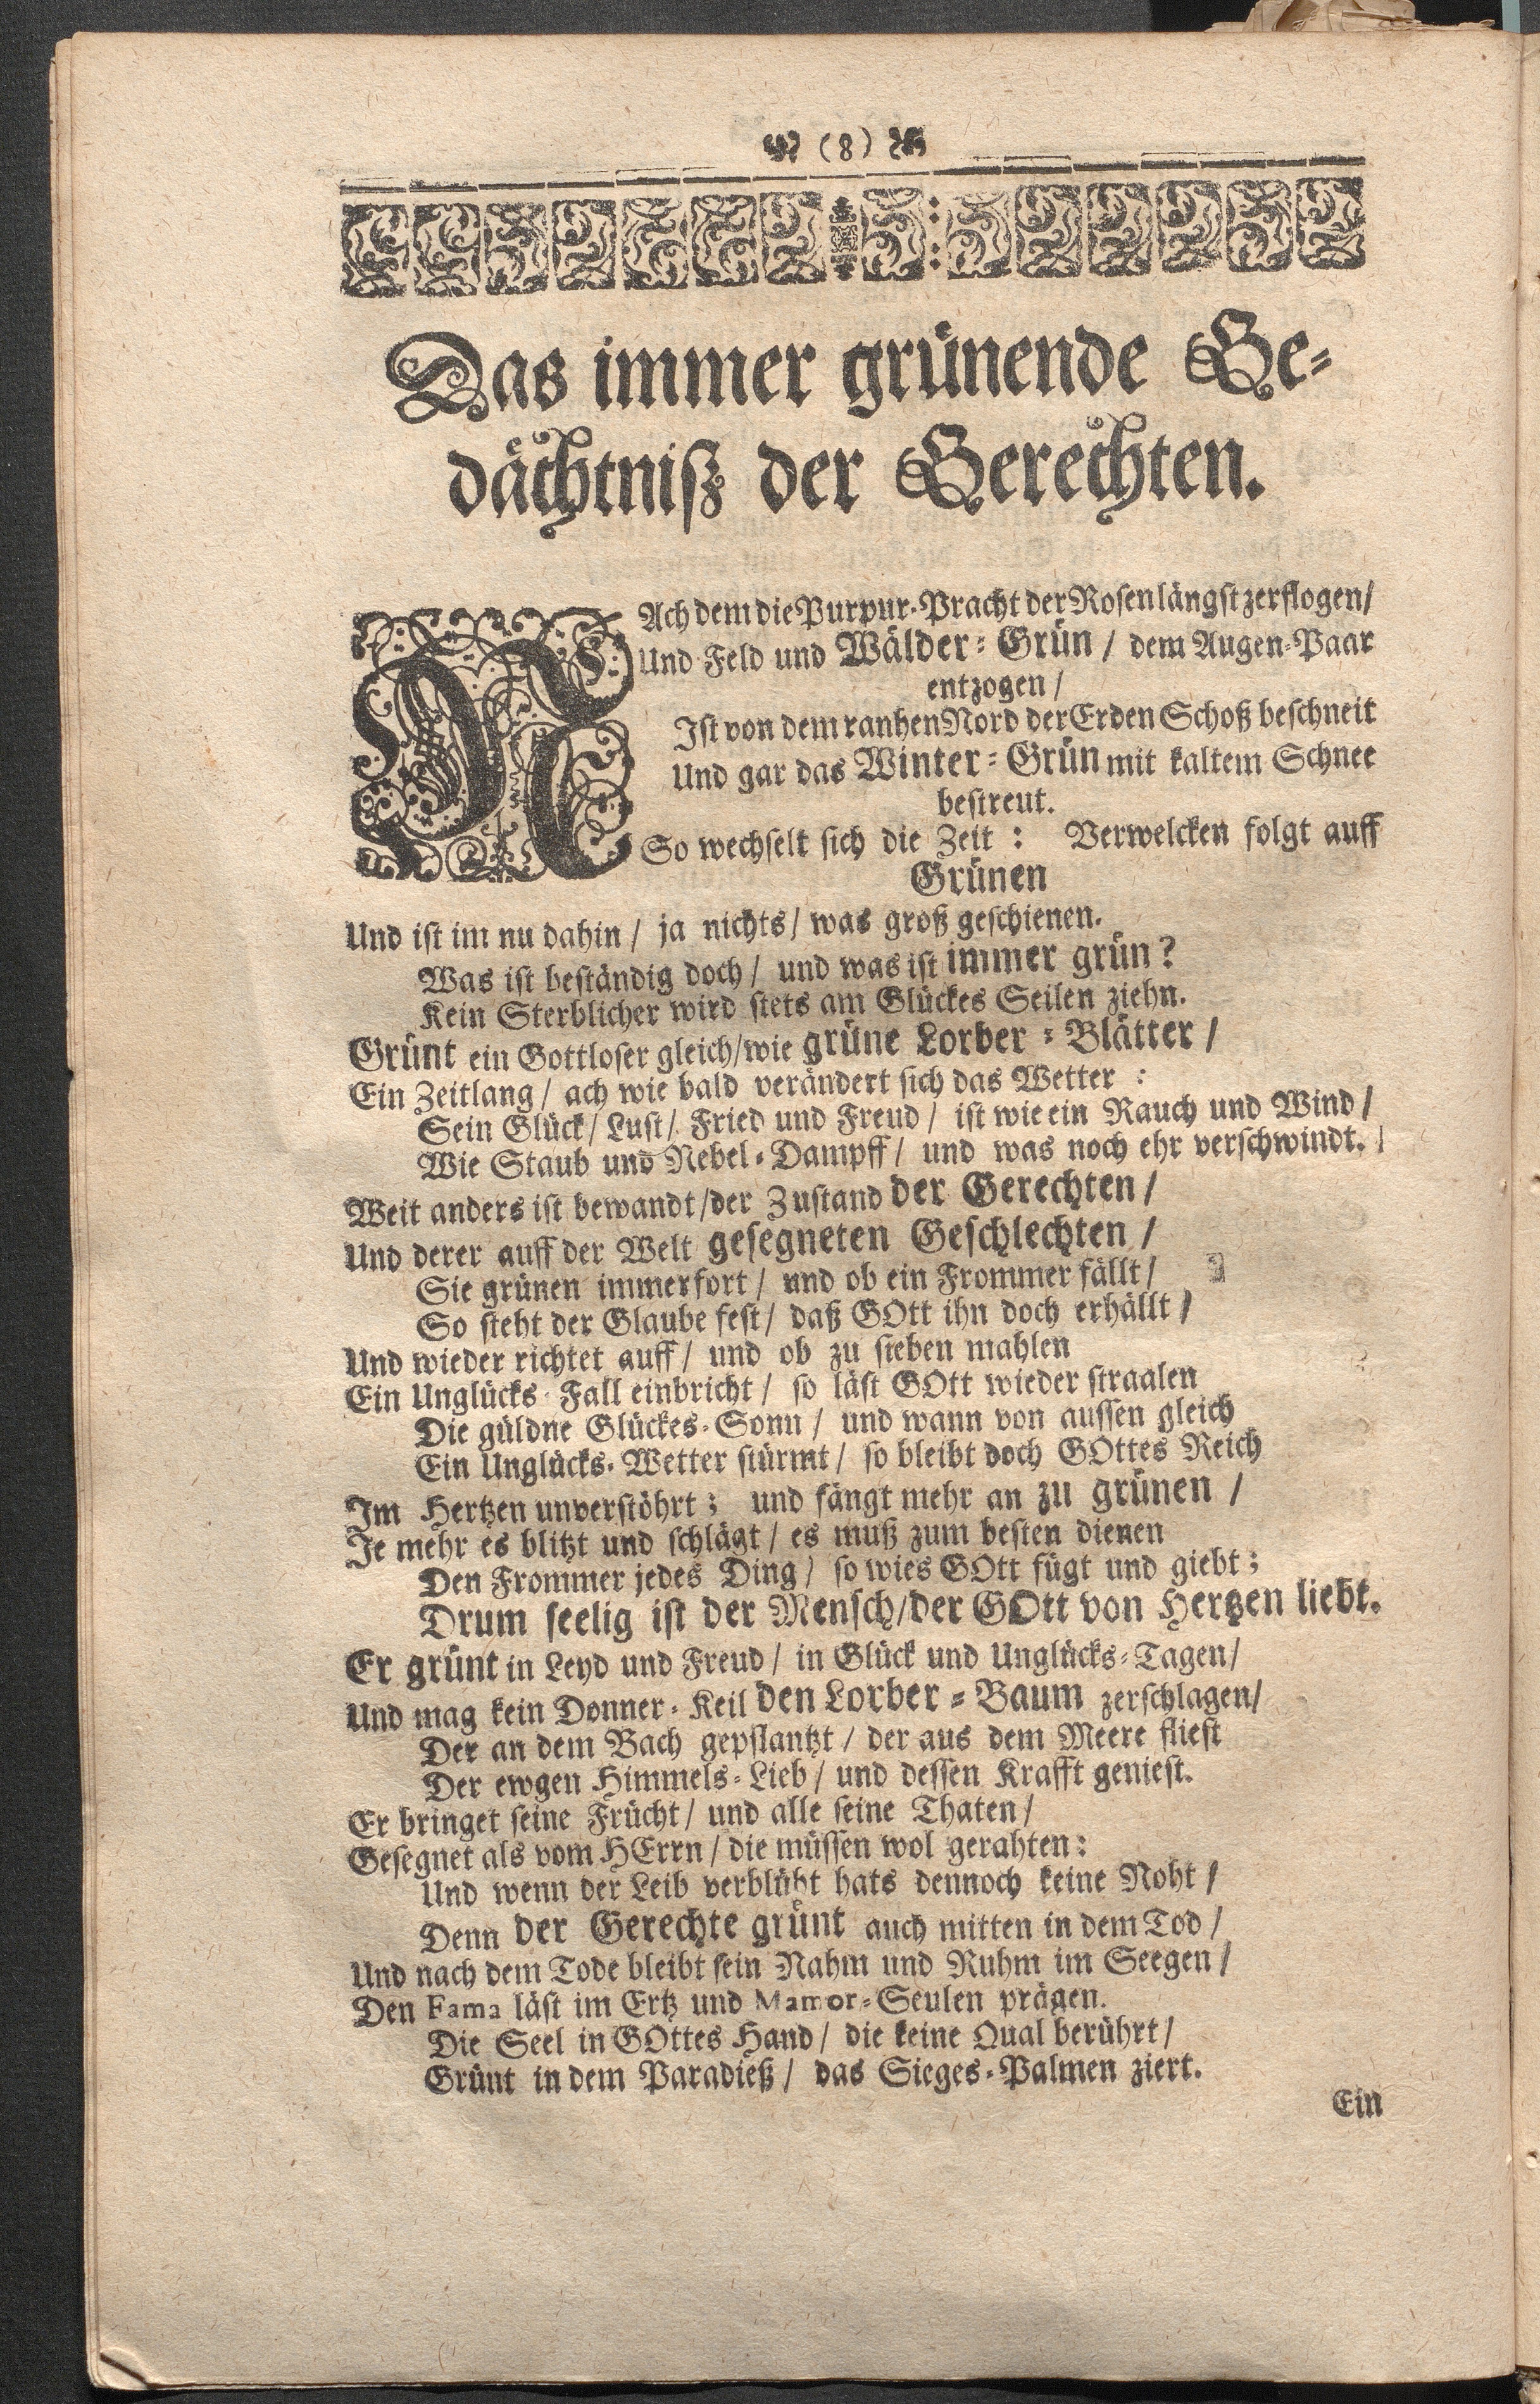 (8)
Das immer grünende Ge-
dächtniß der Gerechten.
NAch dem die Purpur-Pracht der Rosen längst zerflogen/
Und Feld und Wälder-Grün / dem Augen-Paar
entzogen /
Ist von dem ranhen Nord der Erden Schoß beschneit
Und gar das Winter-Grün mit kaltem Schnee
bestreut.
So wechselt sich die Zeit : Verwelcken folgt auff
Grünen
Und ist im nu dahin / ja nichts / was groß geschienen.
Was ist beständig doch / und was ist immer grün?
Kein Sterblicher wird stets am Glückes Seilen ziehn.
Grünt ein Gottloser gleich/wie grüne Lorber-Blätter /
Ein Zeitlang / ach wie bald verändert sich das Wetter :
Sein Glück / Lust / Fried und Freud / ist wie ein Rauch und Wind /
Wie Staub und Nebel-Dampff / und was noch ehr verschwindt.
Weit anders ist bewandt/der Zustand der Gerechten /
Und derer auff der Welt gesegneten Geschlechten /
Sie grünen immerfort / und ob ein Frommer fällt /
So steht der Glaube fest / daß GOtt ihn doch erhällt /
Und wieder richtet auff / und ob zu sieben mahlen
Ein Unglücks-Fall einbricht / so läst GOtt wieder straalen
Die güldne Glückes-Sonn / und wann von aussen gleich
Ein Unglücks-Wetter stürmt / so bleibt doch GOttes Reich
Im Hertzen unverstöhrt ; und fängt mehr an zu grünen /
Je mehr es blitzt und schlägt / es muß zum besten dienen
Den Frommer jedes Ding / so wies GOtt fügt und giebt ;
Drum seelig ist der Mensch/der GOtt von Hertzen liebt.
Er grünt in Leyd und Freud / in Glück und Unglücks-Tagen/
Und mag kein Donner-Keil den Lorber-Baum zerschlagen/
Der an dem Bach gepflantzt / der aus dem Meere fliest
Der ewgen Himmels-Lieb / und dessen Krafft geniest.
Er bringet seine Frücht / und alle seine Thaten /
Gesegnet als vom HErrn / die müssen wol gerahten :
Und wenn der Leib verblüht hats dennoch keine Noht /
Denn der Gerechte grünt auch mitten in dem Tod /
Und nach dem Tode bleibt sein Nahm und Ruhm im Seegen /
Den Fama läst im Ertz und Mamor-Seulen prägen.
Die Seel in GOttes Hand / die keine Qual berührt /
Grünt in dem Paradieß / das Sieges-Palmen ziert.
Ein